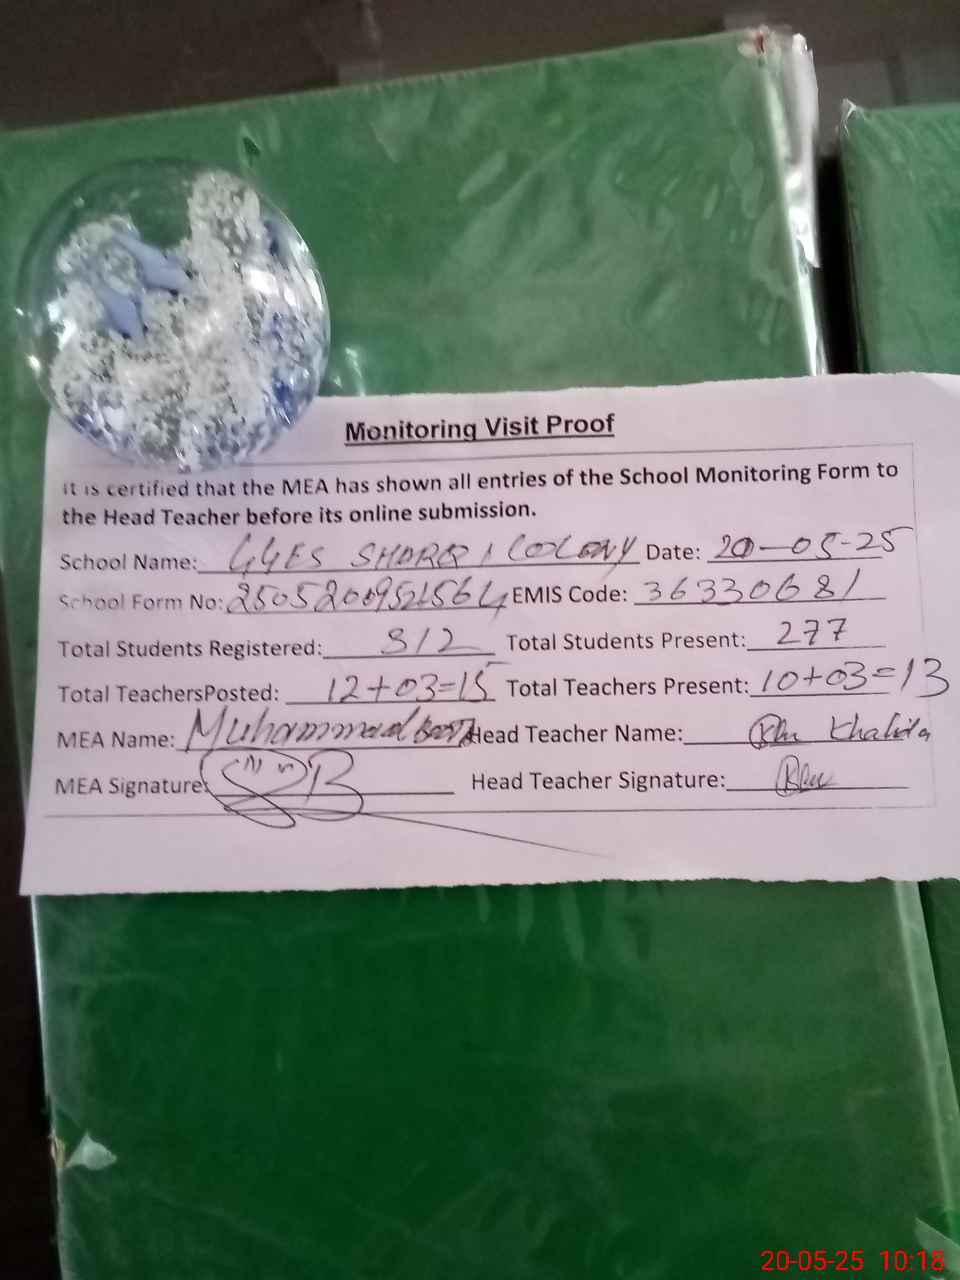 Monitoring Visit Proof
It is certified that the MEA has shown all entries of the School Monitoring Form to
the Head Teacher before its online submission.
School Name: GGES SHARQI COLONY Date: 20-05-25
School Form No: EMIS Code: 36330681
Total Students Registered: 312 Total Students Present: 277
Total TeachersPosted: 12+03=15 Total Teachers Present: 10+03=13
MEA Name: Muhammad Head Teacher Name: Khalida
MEA Signature: Head Teacher Signature:
20-05-25 10:18